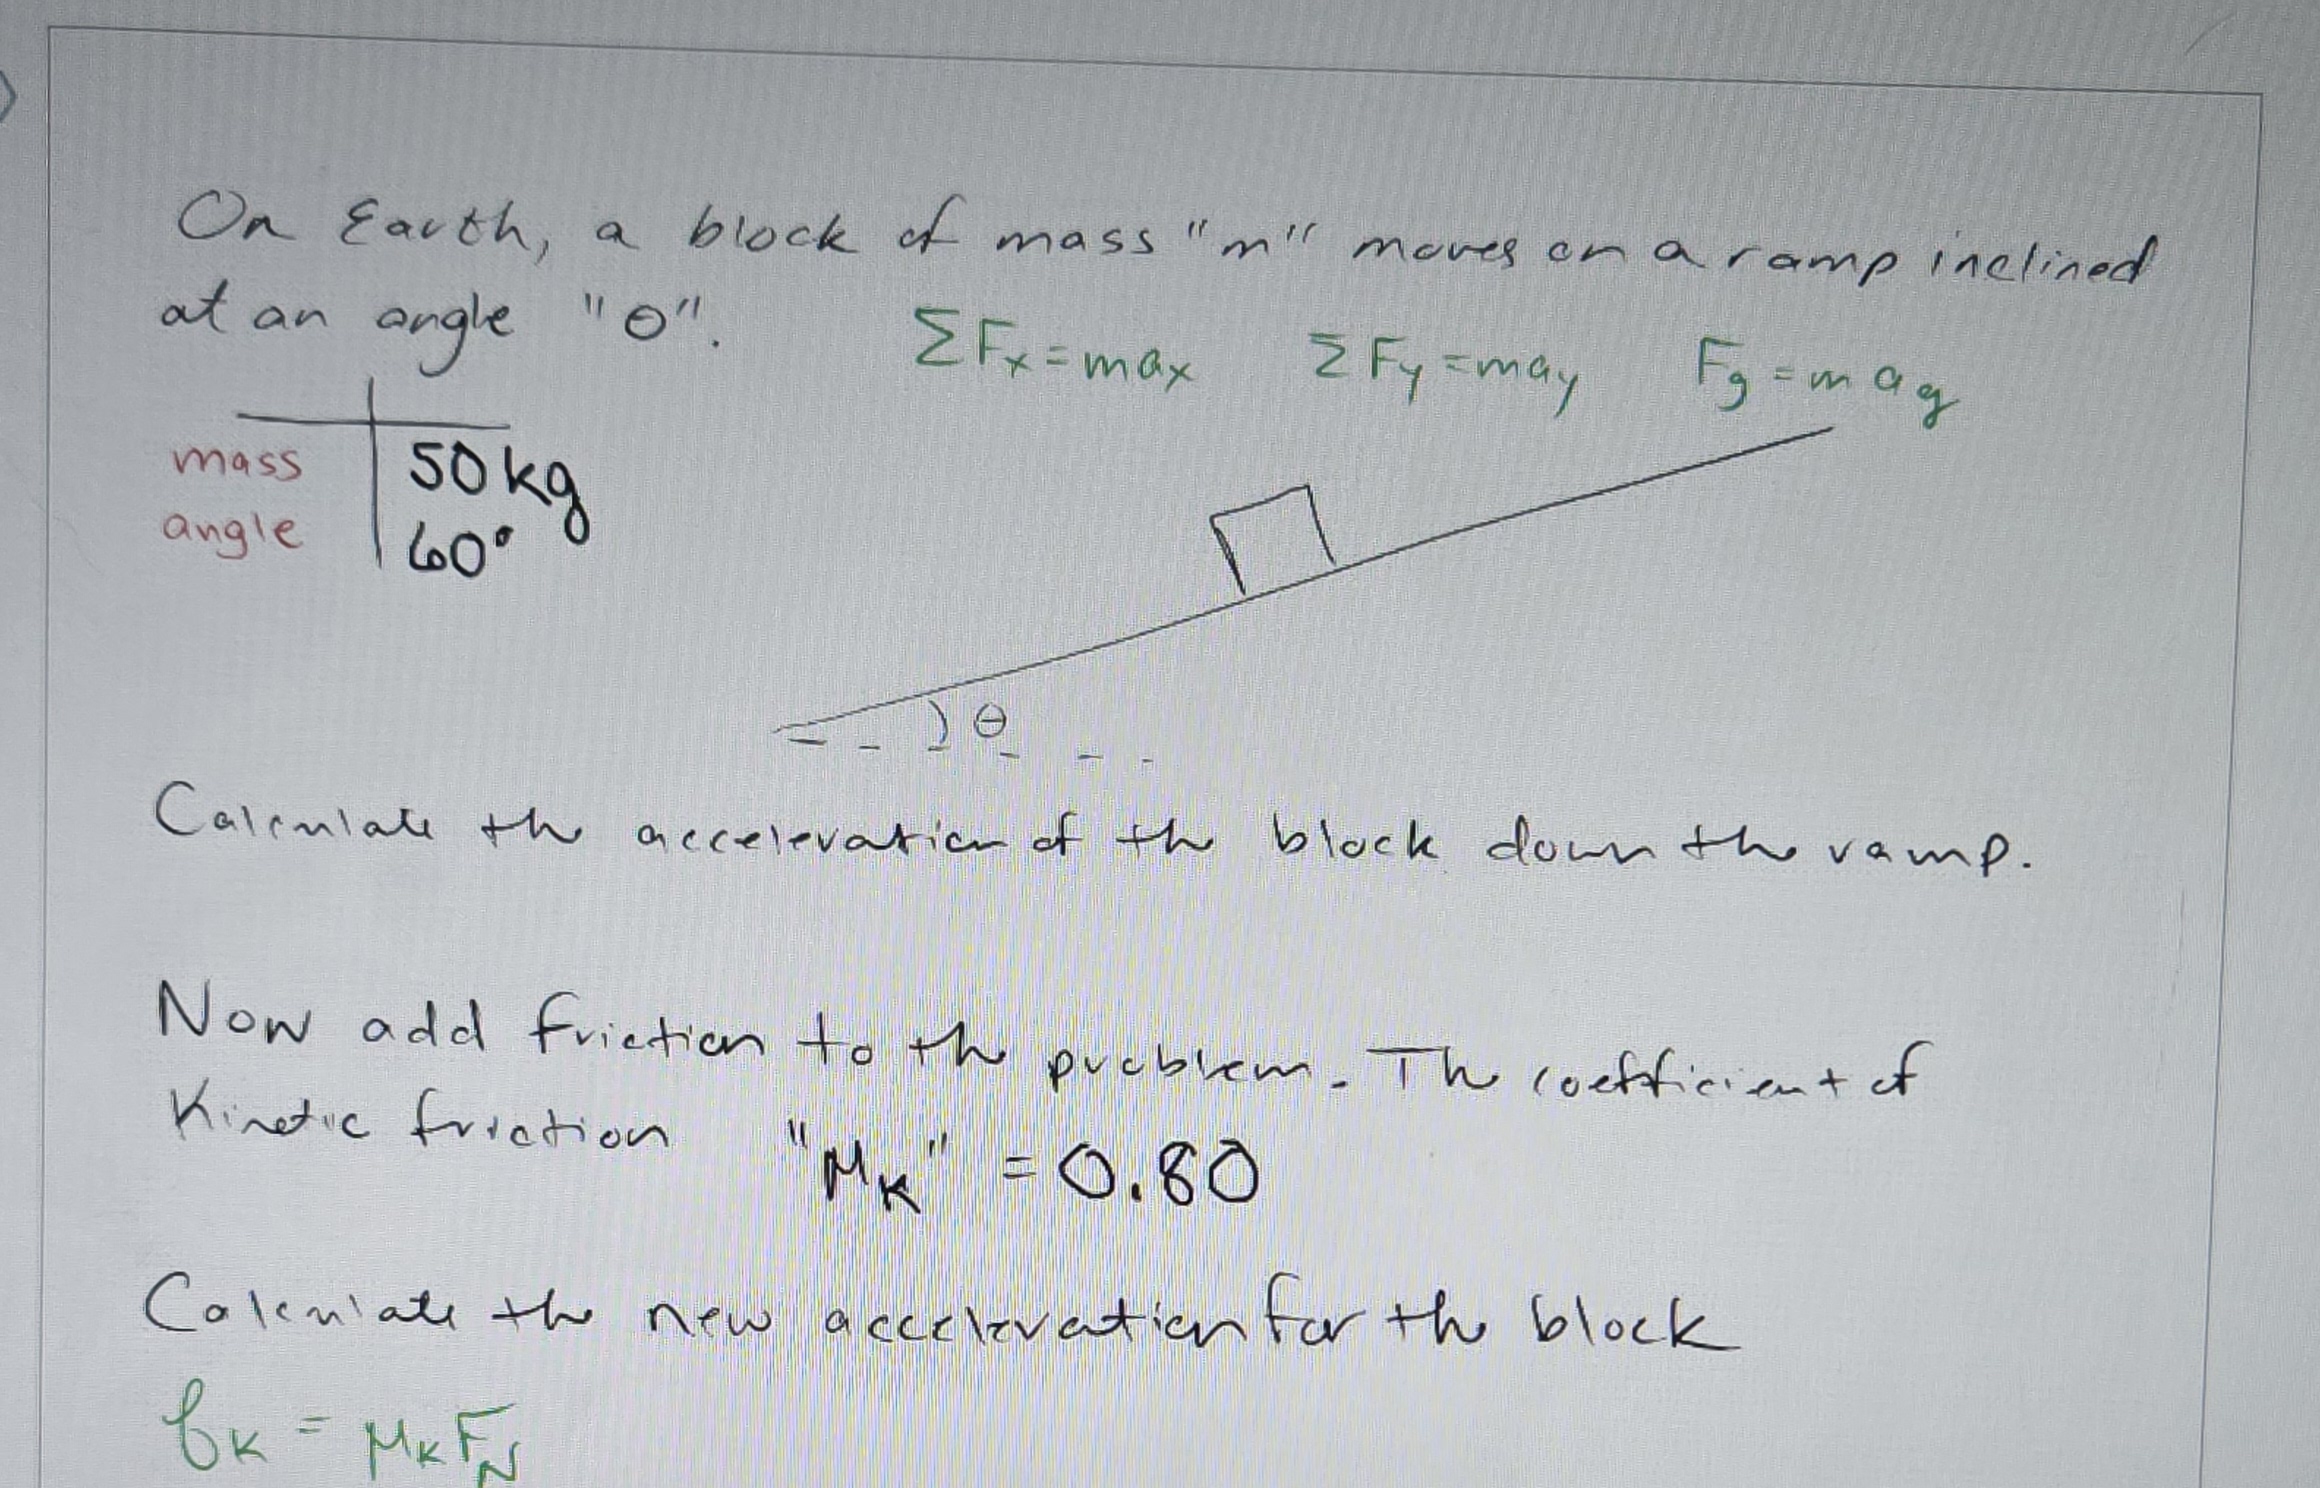 On Earth, a block of mass "m" moves on a ramp inclined
at an angle "θ".
ΣFx = max ΣFy = may Fg = mag
mass 50kg
angle 60°
θ
Calculate the acceleration of the block down the ramp.
Now add friction to the problem. The coefficient of
Kinetic friction "μK" = 0.80
Calculate the new acceleration for the block
fK = μKFN